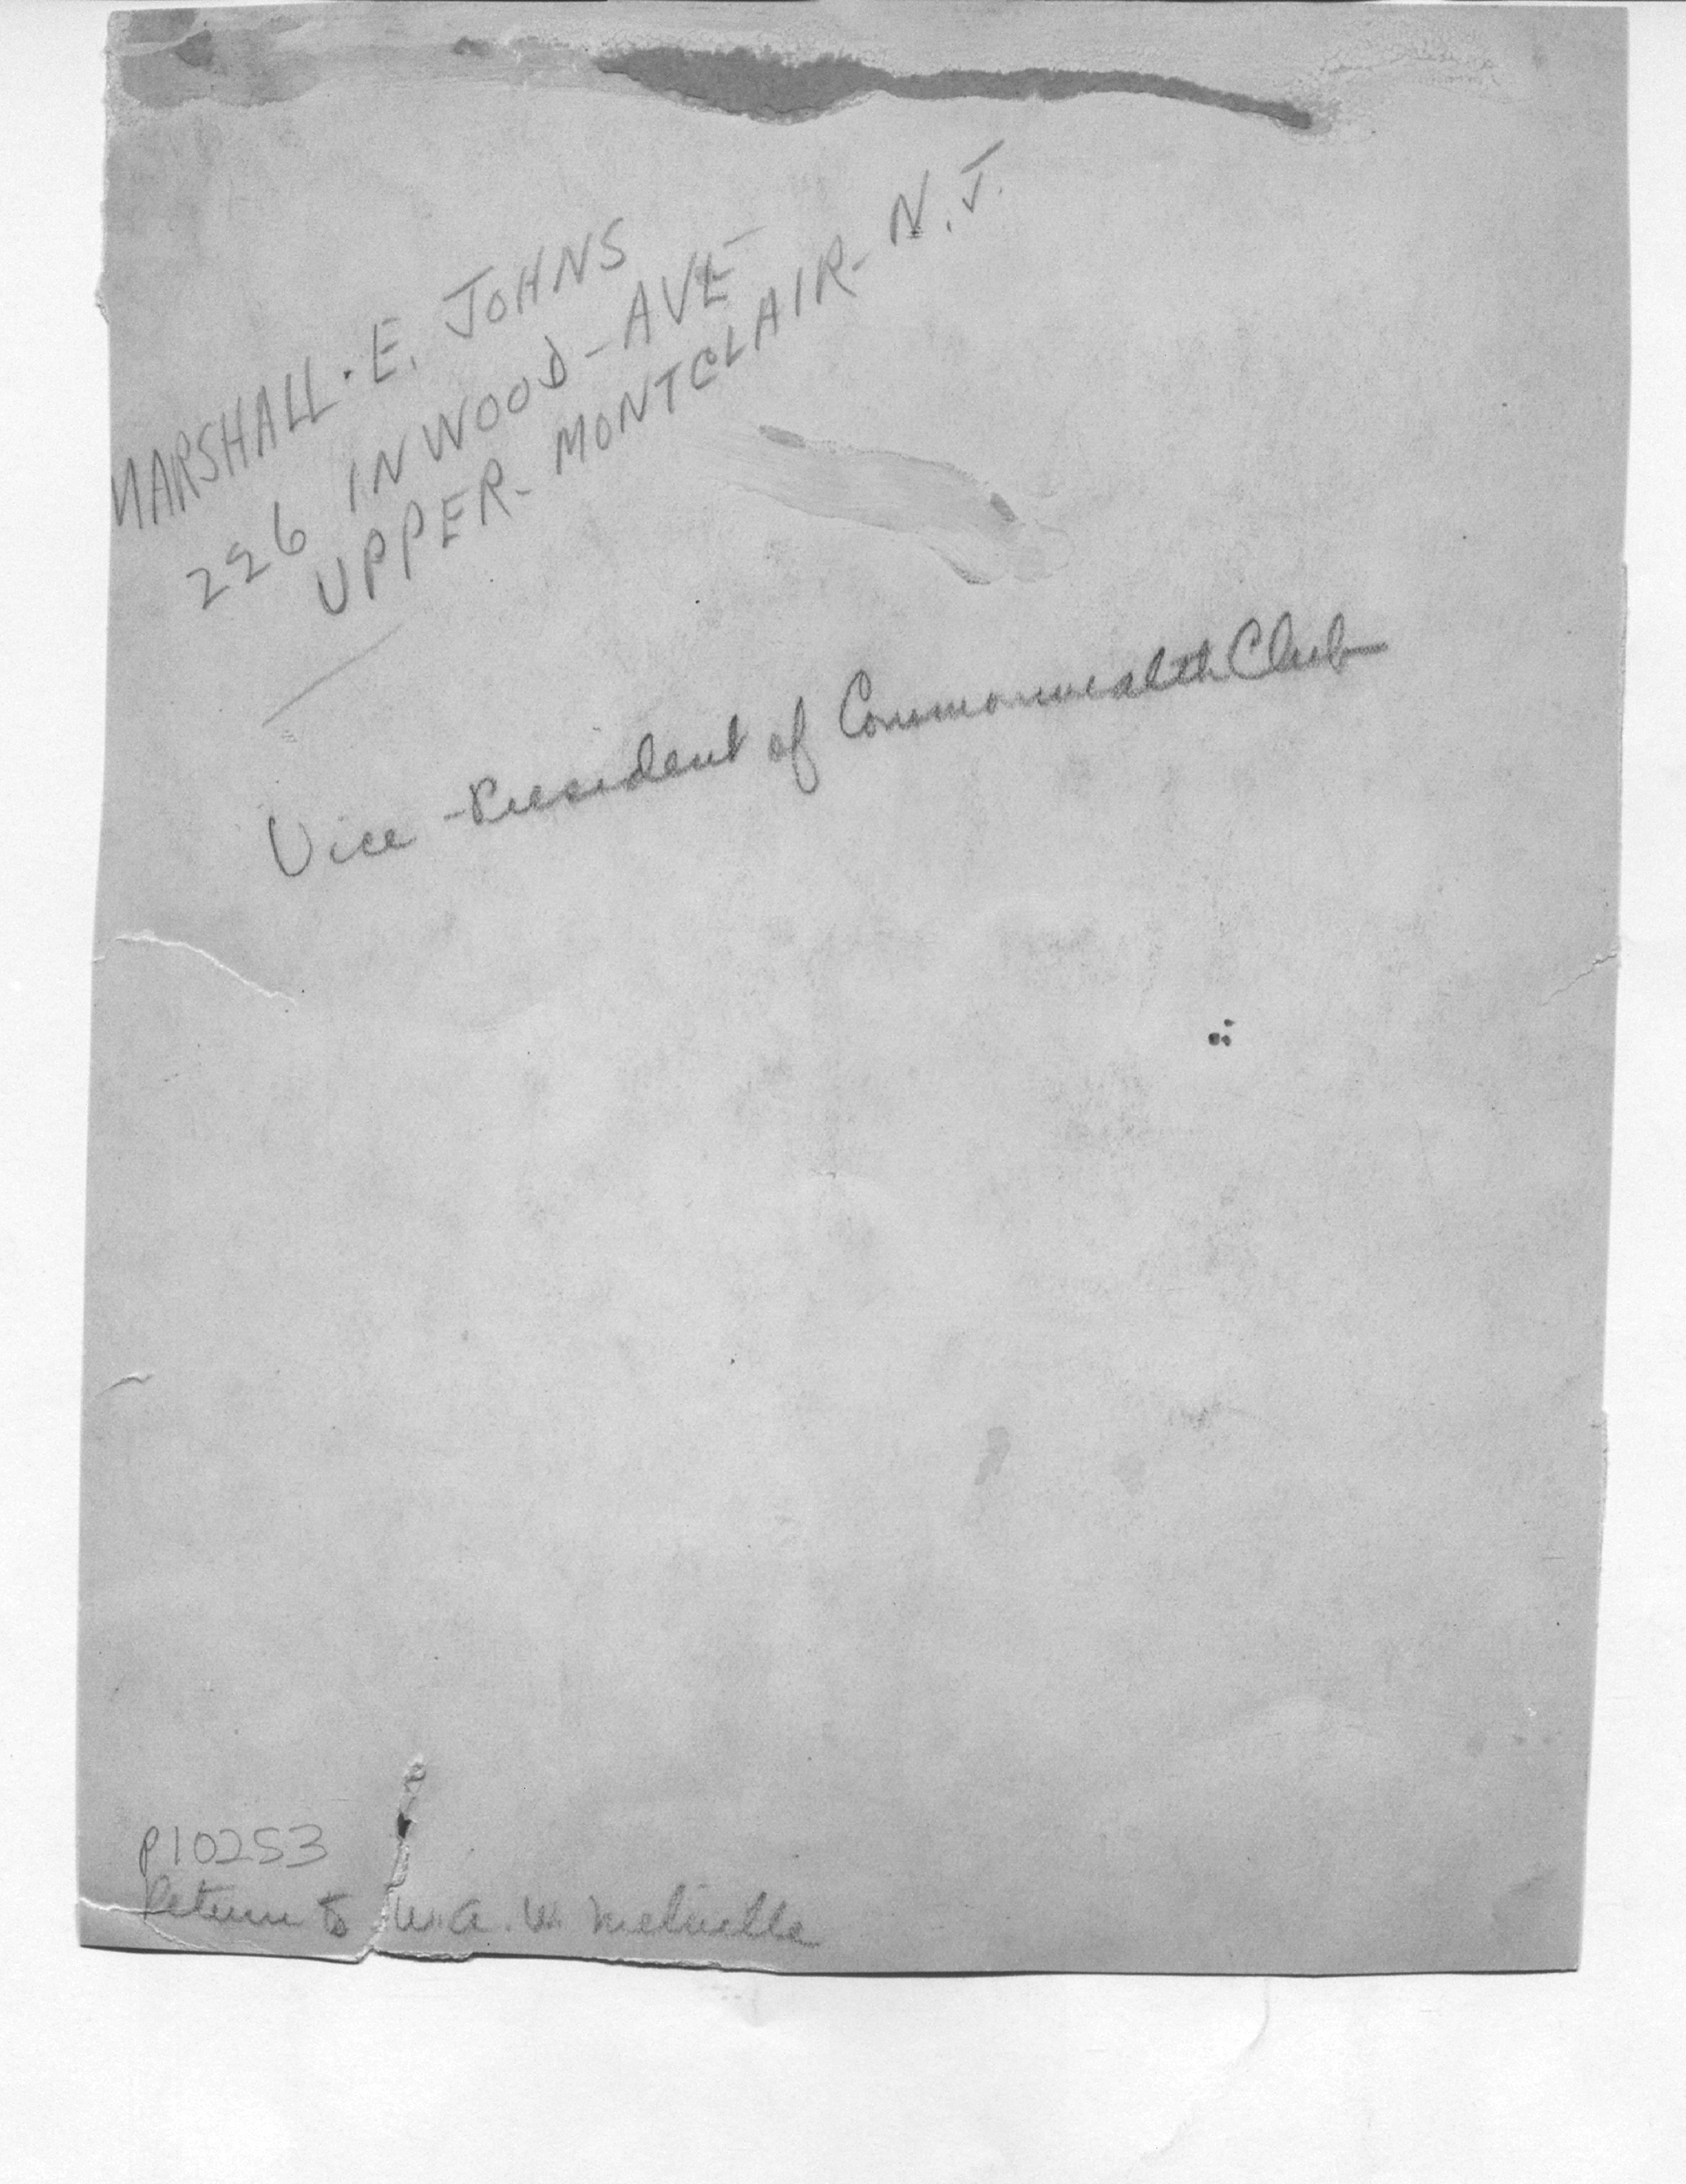 MARSHALL. E. JOHNS
226 INWOOD-AVE-
UPPER-MONTCLAIR-N.J.
Vice-President of Commonwealth Club
P10253
Return to W.A.W. Melville